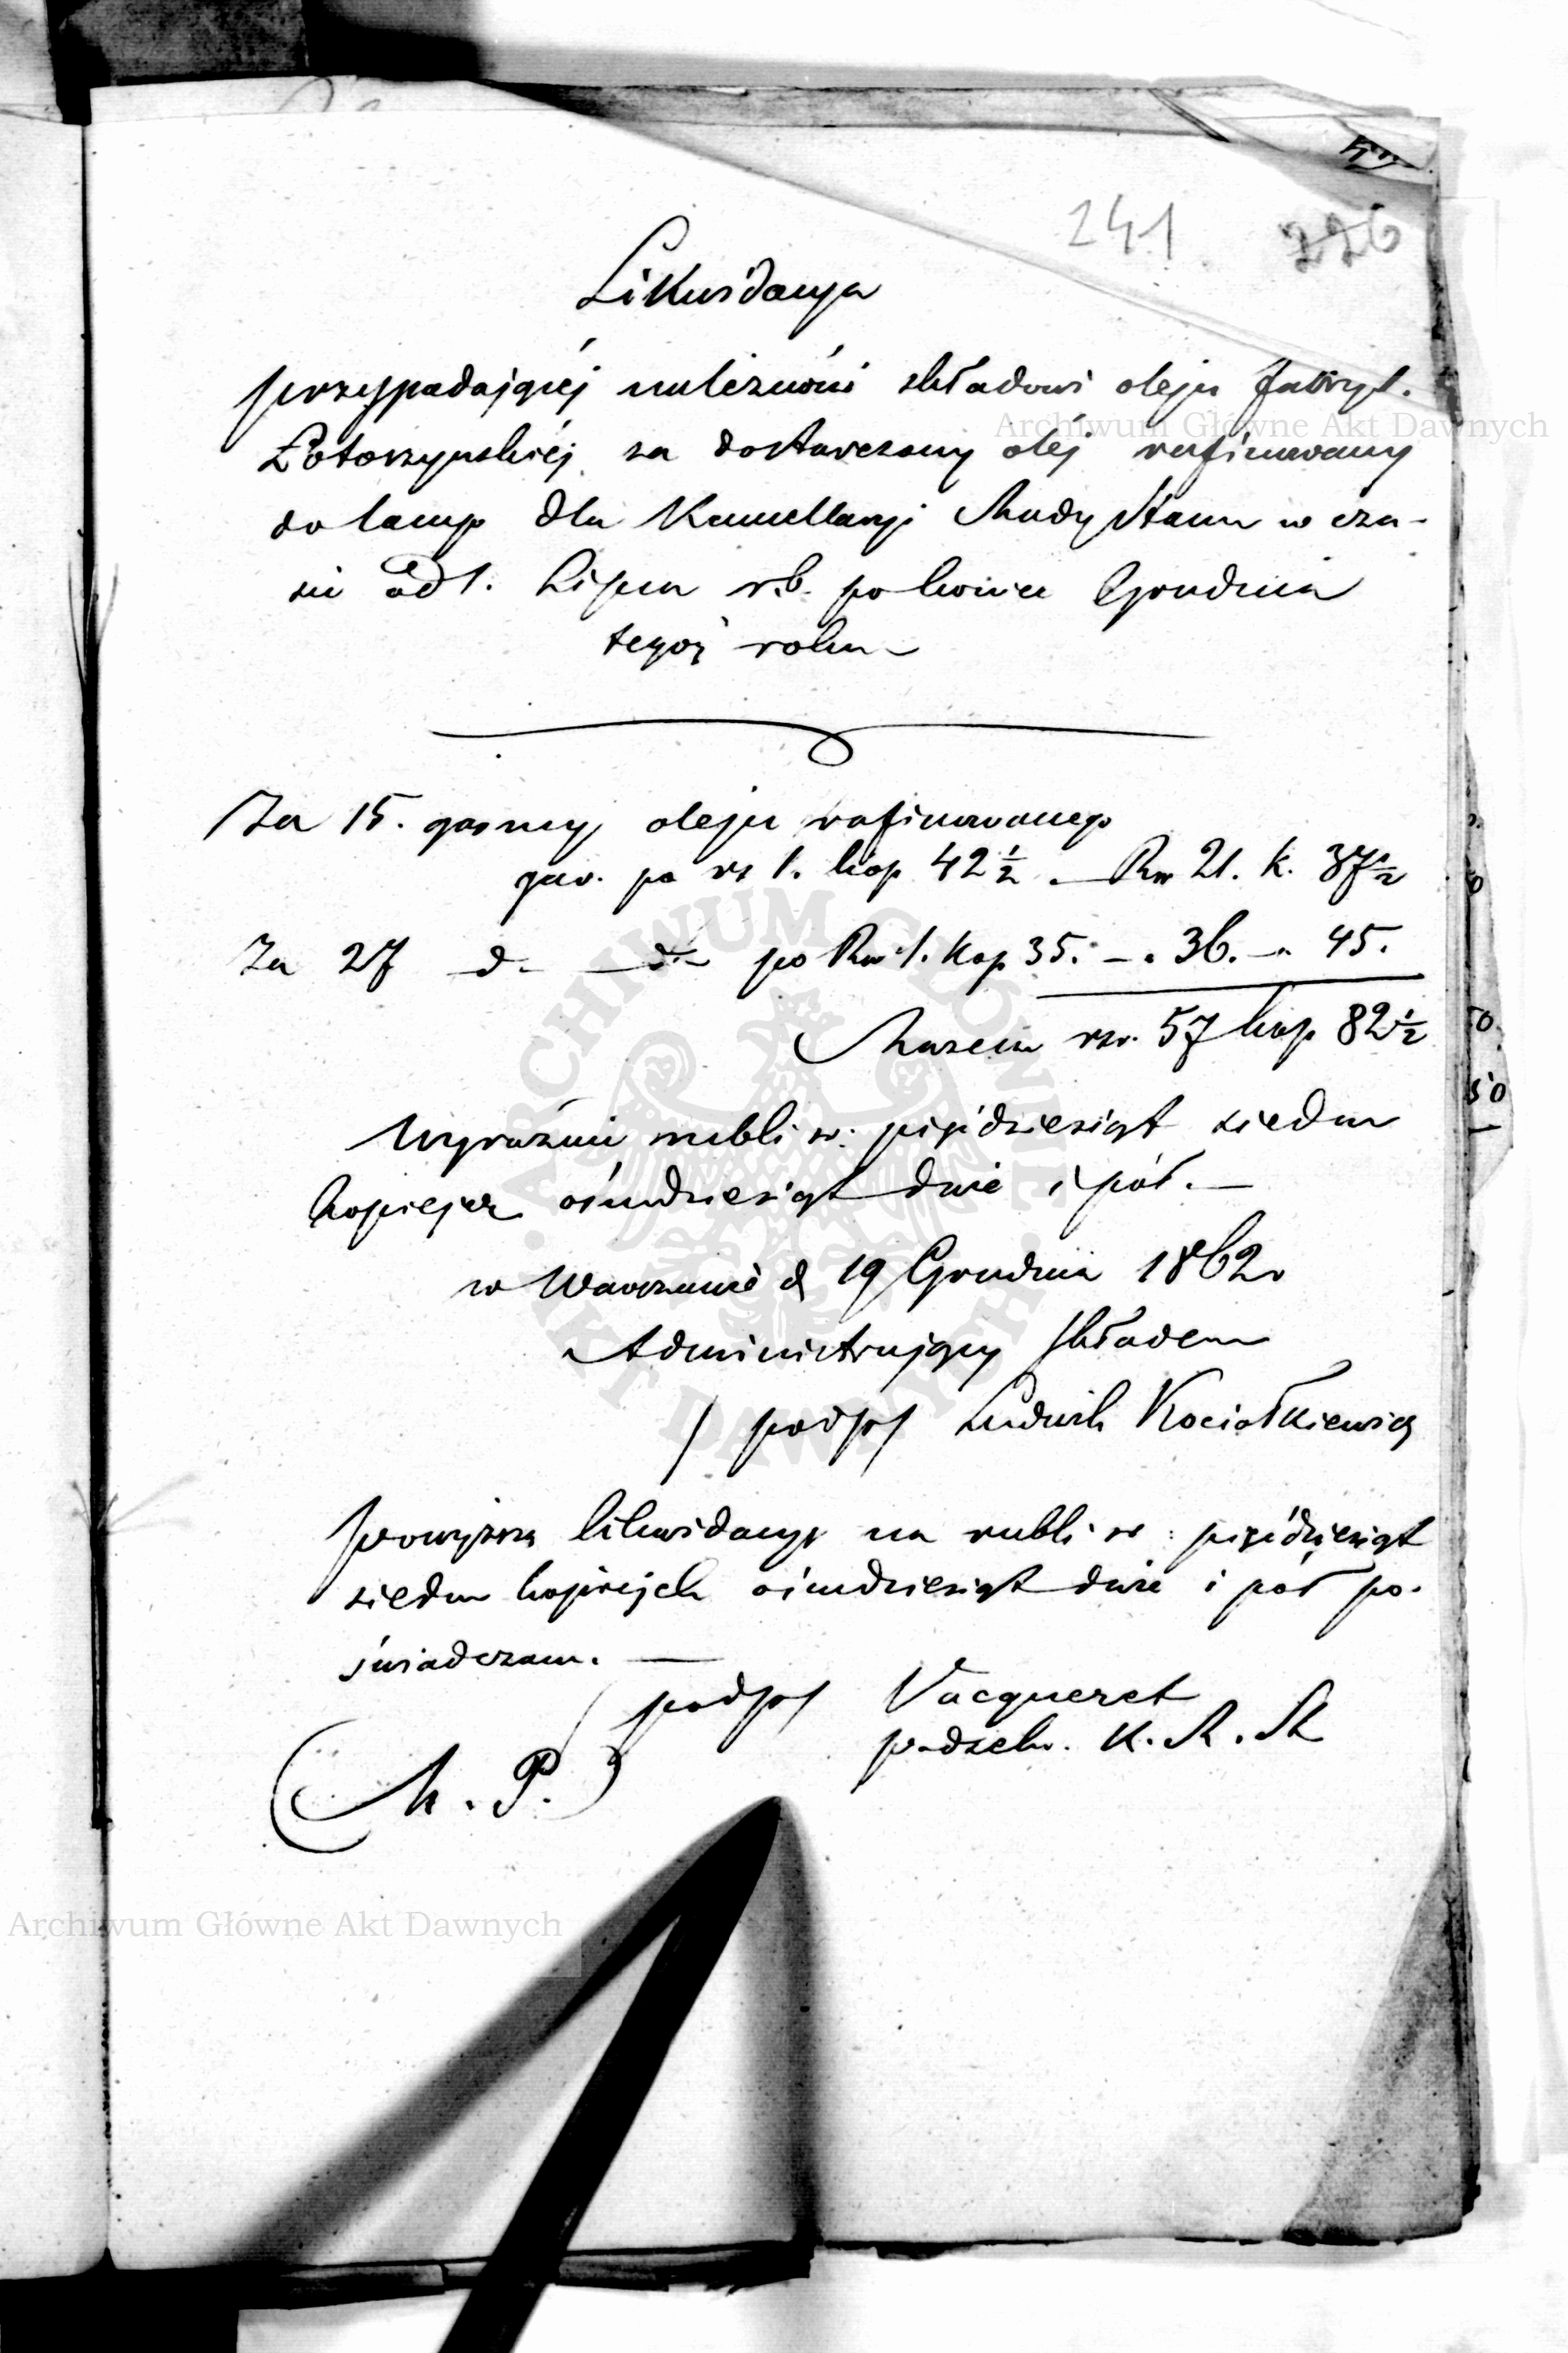 241 226
Likwidacya
przypadającéj należności składowi oleju fabryk.
Łotoszyńskiéj za dostarczony oléj rafinowany
do lamp dla Kancellaryi Rady Stanu w cza-
sie od 1. Lipca r.b. po koniec Grudnia
tegoż roku
Za 15. garncy oleju rafinowanego
gar. po rs 1. kop 42½ — Rsr 21. k. 37½
Za 27 d— d— po Rsr 1. Kop 35. — „ 36. — „ 45.
Razem rsr. 57 kop 82½
Wyraźnie rubli sr: pięćdziesiąt siedm
kopiejek ośmdziesiąt dwie i pół. —
w Warszawie d 19 Grudnia 1862
Administrujący Składem
/podps/ Ludwik Kociołkiewicz
Powyższą likwidacyę na rubli sr: pięćdziesiąt
siedm kopiejek ośmdziesiąt dwie i pół po-
świadczam. —
/podps/ Vacqueret
podsek. K. R. St
(M. P.)
Archiwum Główne Akt Dawnych
Archiwum Główne Akt Dawnych
ARCHIWUM GŁÓWNE AKT DAWNYCH